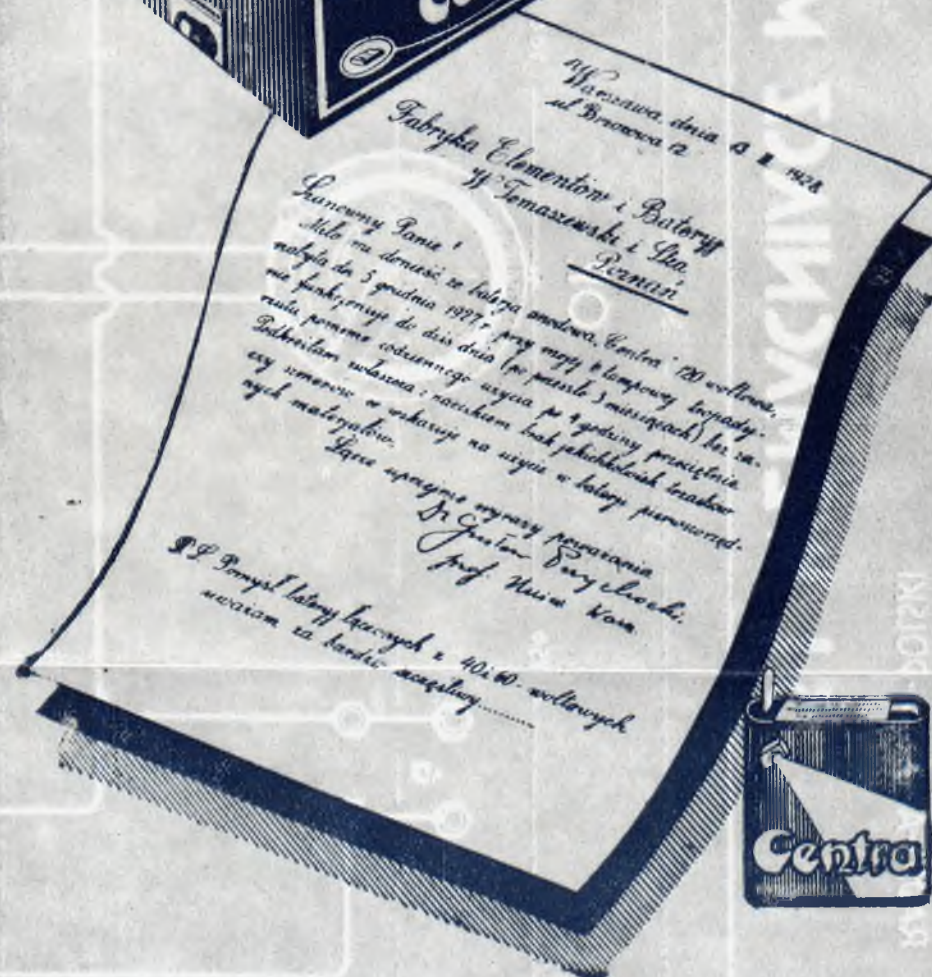 Warszawa, dnia 13 II 1928
ul Brzozowa 12
Fabryka Elementów i Bateryj
W Tomaszewski i Ska
Poznań
Szanowny Panie!
Miło mi donieść że baterja anodowa „Centra" 120 woltowa,
nabyta dn 3 grudnia 1927 r. przy mojej 4 lampowej
nie funkcjonuje do dziś dnia (po przeszło 3 miesiącach) bez za-
rzutu pomimo codziennego użycia po 4 godziny przeciętnie
Podkreślam zwłaszcza z naciskiem brak jakichkolwiek trzasków
czy szmerów co wskazuje na użycie w baterji pierwszorzęd-
nych materjałów.
Łączę uprzejme wyrazy poważania
Dr Gustaw Przychocki.
prof. Uniw Warsz
P.S. Pomysł bateryj łączonych z 40 i 60-woltowych
uważam za bardzo szczęśliwy..........
Centra